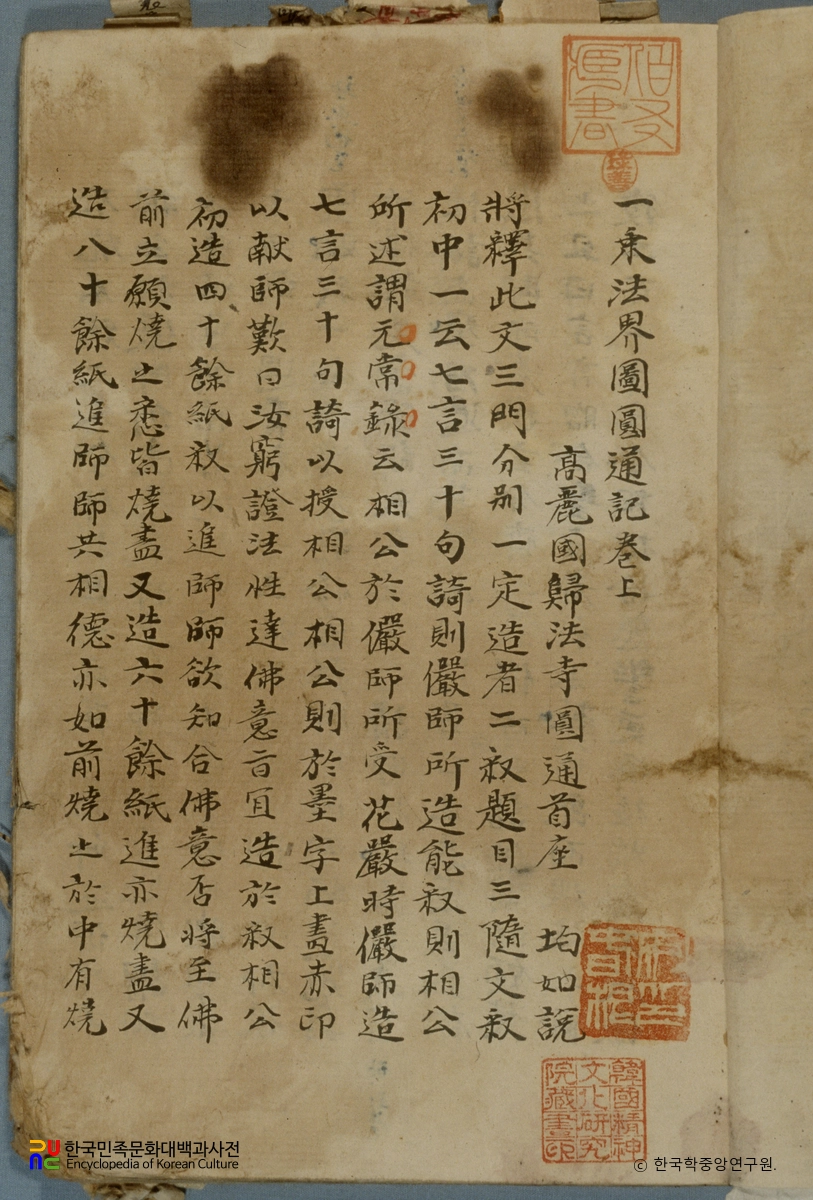 一乘法界圖圓通記卷上
高麗國歸法寺圓通首座 均如說
將釋此文三門分別一定造者二釈題目三隨文釈
初中一云七言三十句詩則儼師所造能釈則相公
所述謂元常錄云相公於儼師所受花嚴時儼師造
七言三十句詩以授相公相公則於墨字上畫赤印
以献師歎曰汝窮證法性達佛意旨宜造於釈相公
初造四十餘紙釈以進師師欲知合佛意否將至佛
前立願燒之悉皆燒盡又造六十餘紙進亦燒盡又
造八十餘紙進師師共相德亦如前燒之於中有燒
韓國精神
文化研究
院藏書印
한국민족문화대백과사전
Encyclopedia of Korean Culture
© 한국학중앙연구원.